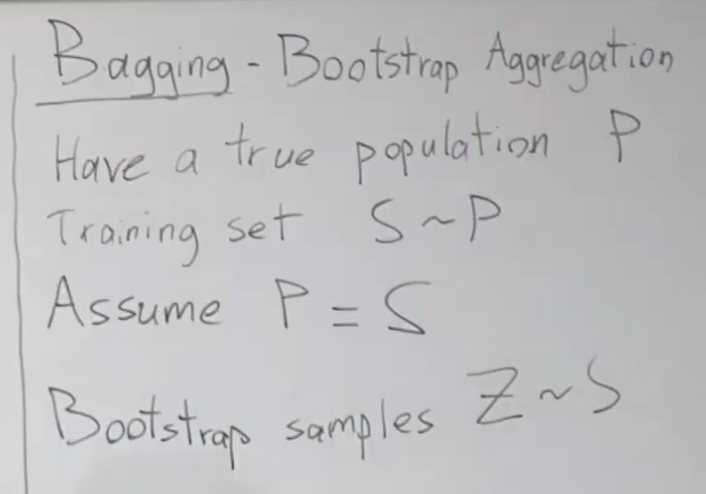 Bagging - Bootstrap Aggregation
Have a true population P
Training set S ~ P
Assume P = S
Bootstrap samples Z ~ S